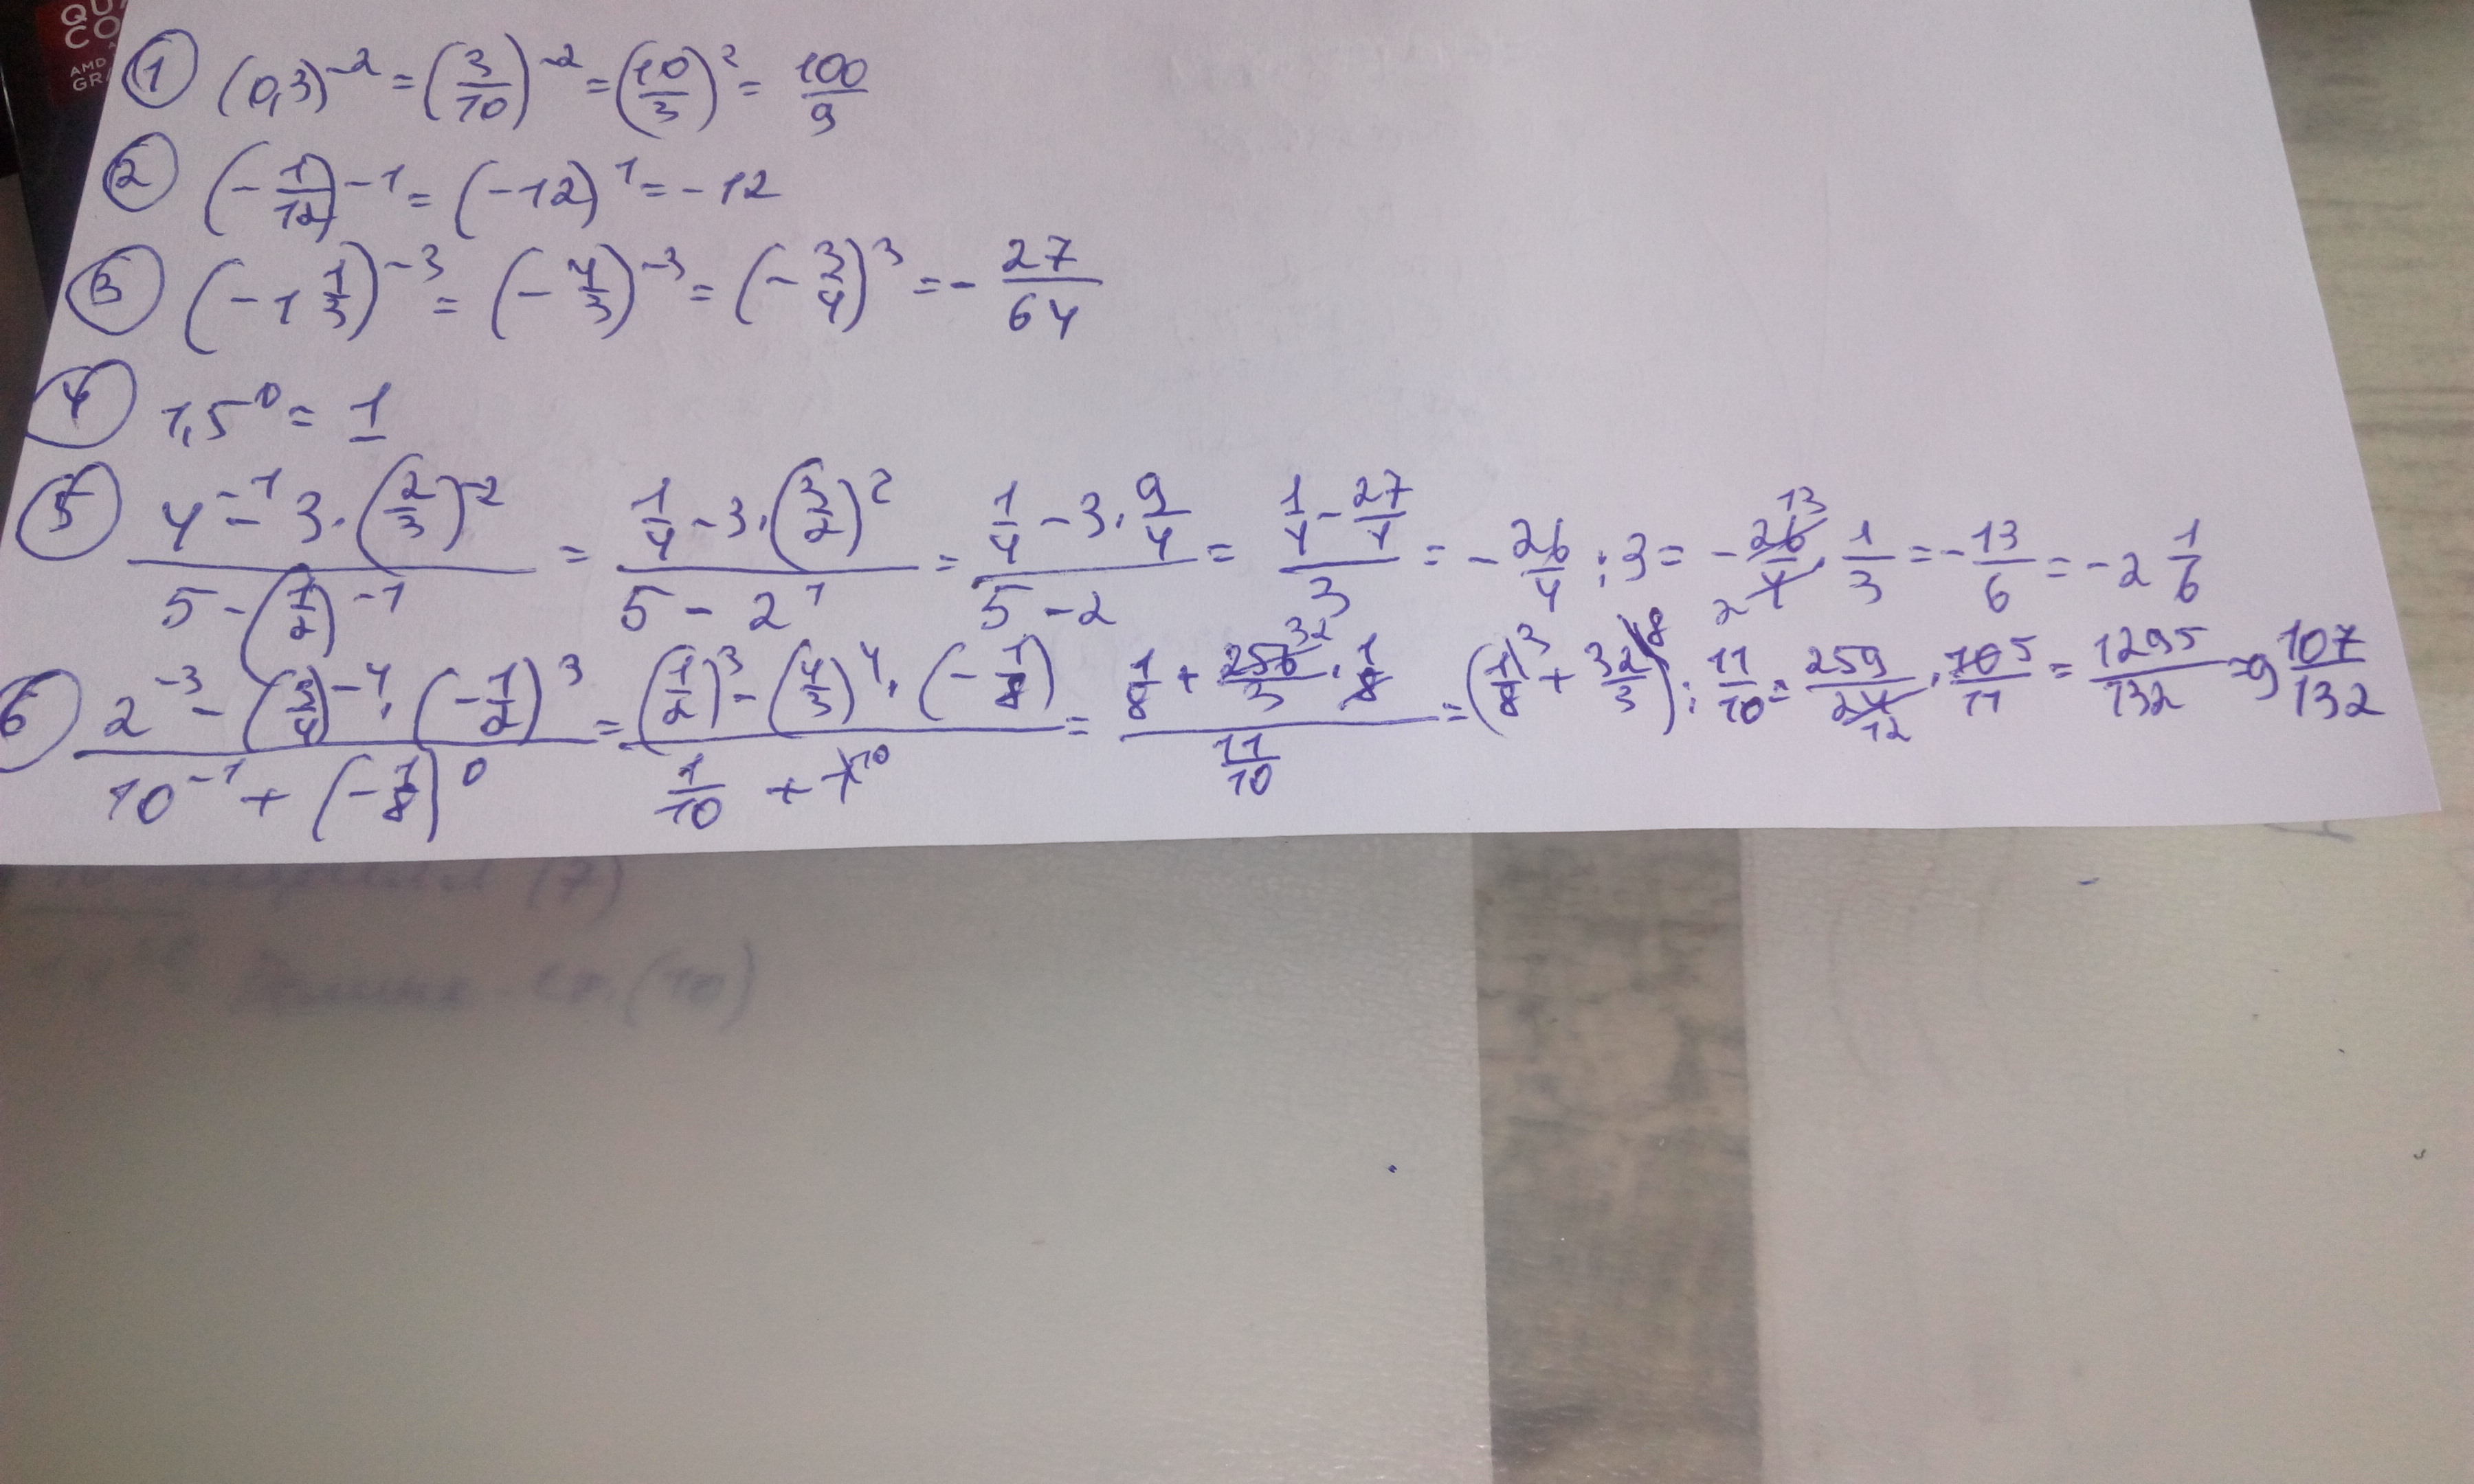 QU
CO
AMD
GR
① (0,3)^-2 = (3/10)^-2 = (10/3)^2 = 100/9
② (-1/12)^-1 = (-12)^1 = -12
③ (-1 1/3)^-3 = (-4/3)^-3 = (-3/4)^3 = -27/64
④ 1,5^0 = 1
⑤ (4^-1 - 3·(2/3)^-2)/(5-(1/2)^-1) = (1/4 - 3·(3/2)^2)/(5-2^1) = (1/4 - 3·9/4)/(5-2) = (1/4 - 27/4)/3 = -26/4 : 3 = -26/4 · 1/3 = -13/6 = -2 1/6
⑥ (2^-3 - (3/4)^-4 · (-1/2)^3)/(10^-1 + (-1/8)^0) = ((1/2)^3 - (4/3)^4 · (-1/8))/(1/10 + 1) = (1/8 + 256/3 · 1/8)/(11/10) = (1/8 + 32/3) : 11/10 = 259/24 · 10/11 = 1295/132 = 9 107/132
(7)
(10)